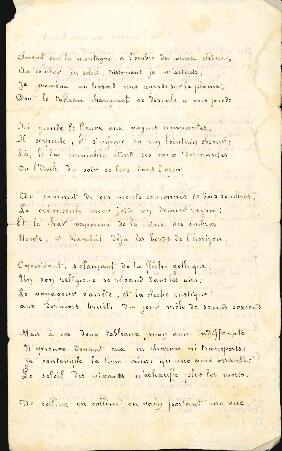 Souvent sur la montagne, à l'ombre du vieux chêne,
Au coucher du soleil, tristement je m'assieds,
Je promène au hasard mes regards sur la plaine,
Dont le tableau changeant se déroule à mes pieds.
Ici gronde le fleuve aux vagues écumantes,
Il serpente, et s'enfonce en un lointain obscur;
Là, le lac immobile étend ses eaux dormantes
Où l'étoile du soir se lève dans l'azur.
Au sommet de ces monts couronnés de bois sombres,
Le crépuscule encor jette un dernier rayon;
Et le char vaporeux de la reine des ombres
Monte, et blanchit déjà les bords de l'horizon.
Cependant, s'élançant de la flèche gothique,
Un son religieux se répand dans les airs,
Le voyageur s'arrête, et la cloche rustique
Aux derniers bruits du jour mêle de saints concerts
Mais à ces doux tableaux, mon âme indifférente
N'éprouve devant eux ni charme ni transports;
Je contemple la terre ainsi qu'une ombre errante;
Le soleil des vivants n'échauffe plus les morts.
De colline en colline en vain portant ma vue,